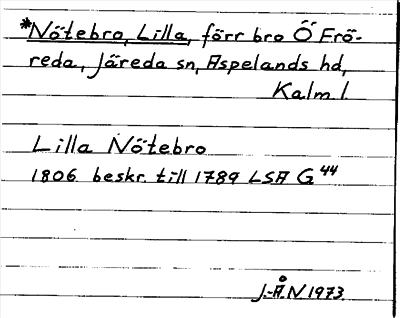 *Nötebro, Lilla, förr bro Ö Frö-
reda, Järeda sn, Aspelands hd,
Kalm l.
Lilla Nötebro
1806 beskr. till 1789 LSA G44
J.-Å.N 1973